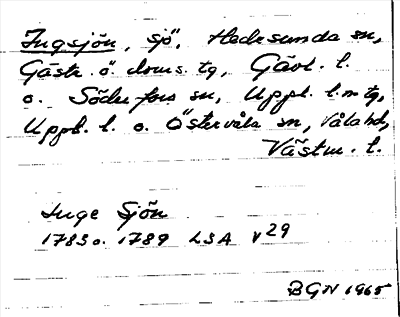 Ingsjön, sjö, Hedesunda sn,
Gästr. ö. doms. tg, Gävl. l.
o. Söderfors sn, Uppl. l.n tg,
Uppl. l. o. Östervåla sn, Våla hd,
Västm. l.
Inge Sjön
1783 o. 1789 LSA V29
BGN 1965